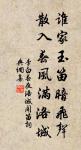 誰家玉笛暗飛聲
散入春風滿洛城
李白春夜洛城聞笛